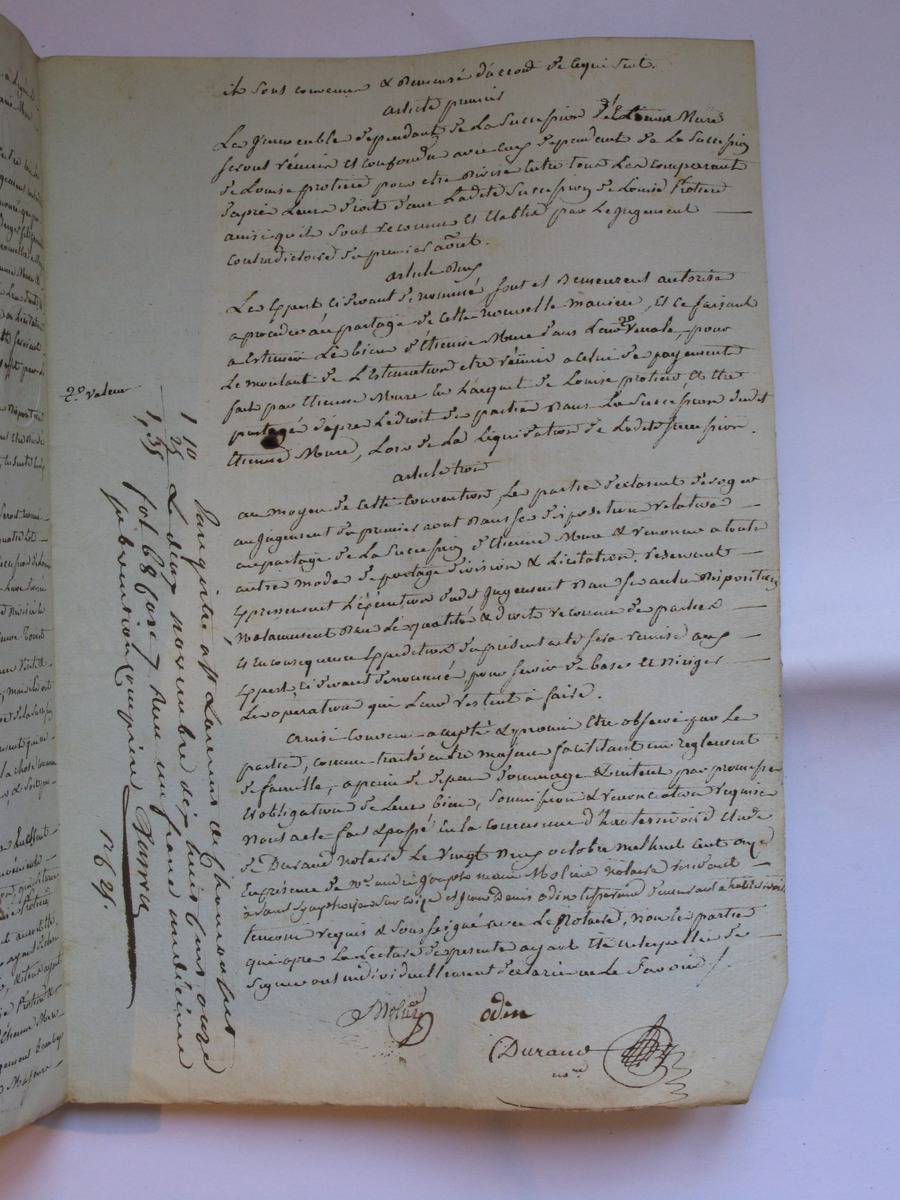 ils sont convenus & demeuré d'accord de ce qui suit.
article premier
Les Immeubles dependant de la succession d'Etienne Mure
seront réunis et confondu avec ceux dependant de la succession
de Louise protiere pour etre divisé entre tous les comparant
d'apres leurs droit dans ladite succession de Louise Protiere
ainsi qu'ils sont reconnus et etablis par le jugement
contradictoire du premier aout.
article deux
Les Expert ci devant denommés sont et demeurent autorisés
a procéder au partage de cette nouvelle maniere, et ce faisant
a Estimer les biens d'Etienne Mure dans leur valeur venale, pour
le montant de l'Estimation etre réunis a celui de payement
fait par Etienne Mure en l'acquit de Louise protiere, et etre
partagés d'apres le droit de parties dans la succession dudit
Etienne Mure, lors de la liquidation de ladite succession.
article trois
au moyen de cette convention, les parties declarent deroger
au jugement du premier aout dans ses dispositions relatives
au partage de la succession d'Etienne Mure & renoncer a toute
autre mode de partage division & licitation. reservent
Expressement l'Exécution dudit jugement dans ses autres dispositions
notamment dans les qualités & droits reconnus des parties
et en consequence Expedition du présent acte sera remise aux
Expert ci devant denommés pour servir de bases et diriger
les opérations qui leurs restent à faire.
ainsi convenu accepté & promis Etre observé par les
parties, comme traité entre majeurs facilitant un reglement
de famille, a peine de depens dommages & interets par promesse
et obligation de leurs biens, soumission & renonciation requise
dont acte fait & passé en la commune d'hauterivoire etude
de Durand notaire Le vingt deux octobre mil huit cent onze
En présence de mr andré joseph marie Moliere notaire residant
a saint symphorien sur coise et jean Denis odin tisserand demeurant a hauterivoire
temoins requis & soussigné avec le notaire, non les parties
qui apres la lecture des presentes ayant Eté interpellées de
signer ont individuellement declaré ne le savoir /.
odin
Durand
nre
2.° valeur
1 10
25
1,35
Enregistré a St Laurent de chamousset
Le deux novembre dix huit cent onze
fol. 68 Case 7 Recu un franc un décime
subvention comprise